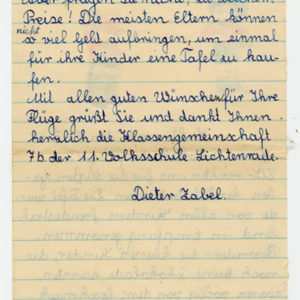 Aber fragen Sie nicht, zu welchem
Preise! Die meisten Eltern können
nicht
so viel Geld aufbringen, um einmal
für ihre Kinder eine Tafel zu kau-
fen.
Mit allen guten Wünschen für Ihre
Flüge grüßt Sie und dankt Ihnen
herzlich die Klassengemeinschaft
7b der 11. Volksschule Lichtenrade.
Dieter Zabel.